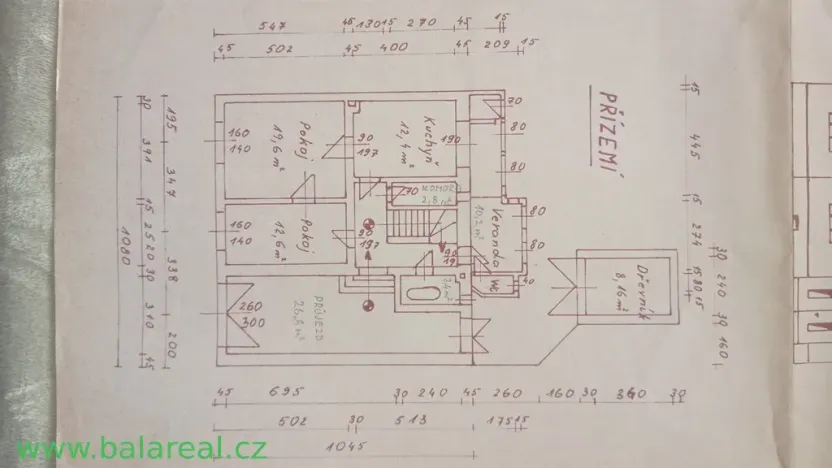 547 45 130 15 270 45 15
45 502 45 400 45 209 15
PŘÍZEMÍ
70
80
80
80
80
Kuchyň
12,4 m²
190
Pokoj
19,6 m²
160
140
90
197
70
KOMORA
2,8 m²
Veranda
10,2 m²
Pokoj
12,6 m²
160
140
90
197
WC
40
PRŮJEZD
260
300
Dřevník
8,16 m²
195 347 338 200
30 391 15 25 20 30 310 45
1080
15 445 15 274 15 80 15
30 240 30 160
45 695 30 240 45 260 160 30 360 30
502 30 513 175 15
1045
www.balareal.cz